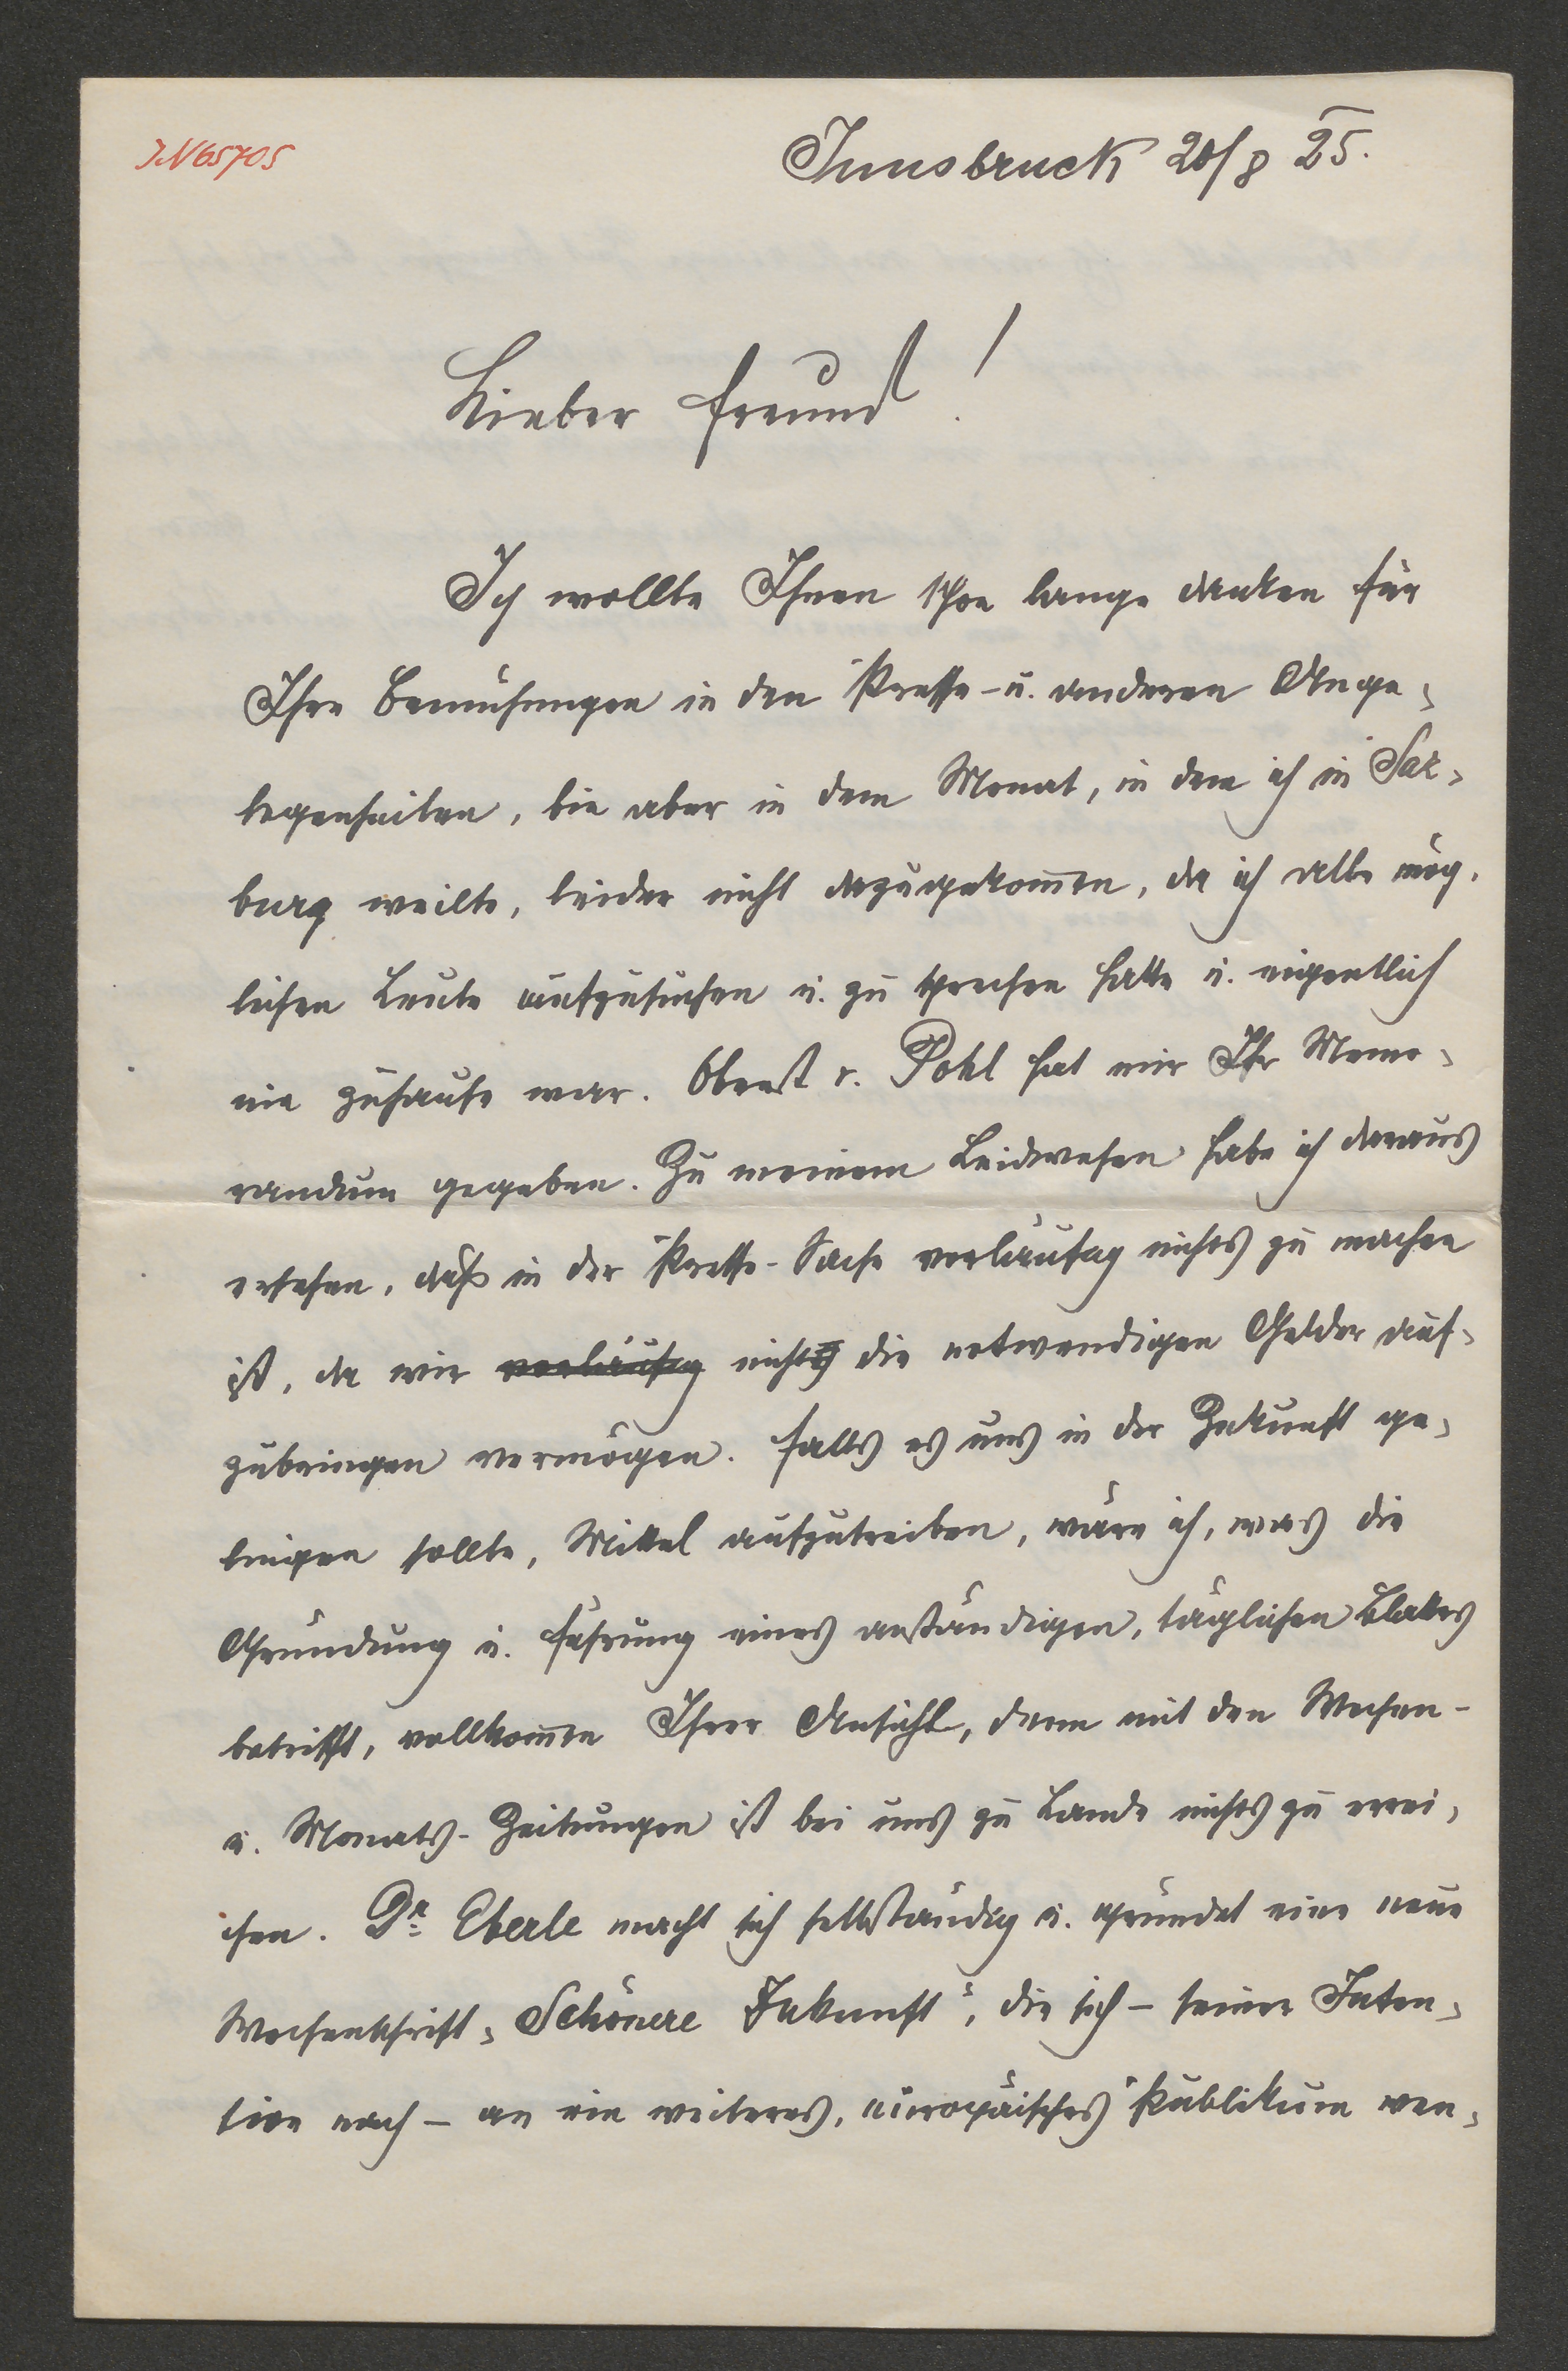 IN 65705
Innsbruck 20/8 25.
Lieber Freund!
Ich wollte Ihnen schon lange danken für
Ihre Bemühungen in den Presse- u. anderen Ange-
legenheiten, bin aber in dem Monat, in dem ich in Salz-
burg weilte, leider nicht dazugekommen, da ich alle mög-
lichen Leute aufzusuchen u. zu sprechen hatte u. eigentlich
nie zuhause war. Oberst v. Pohl hat mir Ihr Memo-
randum gegeben. Zu meinem Leidwesen habe ich daraus
ersehen, daß in der Presse-Sache vorläufig nichts zu machen
ist, da wir vorläufig nicht die notwendigen Gelder auf-
zubringen vermögen. Falls es uns in der Zukunft ge-
lingen sollte, Mittel aufzutreiben, wäre ich, was die
Gründung u. Führung eines anständigen, täglichen Blattes
betrifft, vollkommen Ihrer Ansicht, denn mit den Wochen-
u. Monats-Zeitungen ist bei uns zu Lande nichts zu errei-
chen. Dr. Eberle macht sich selbständig u. gründet eine neue
Wochenschrift „Schönere Zukunft“, die sich – seiner Inten-
tion nach – an ein weiteres, europäisches Publikum wen-